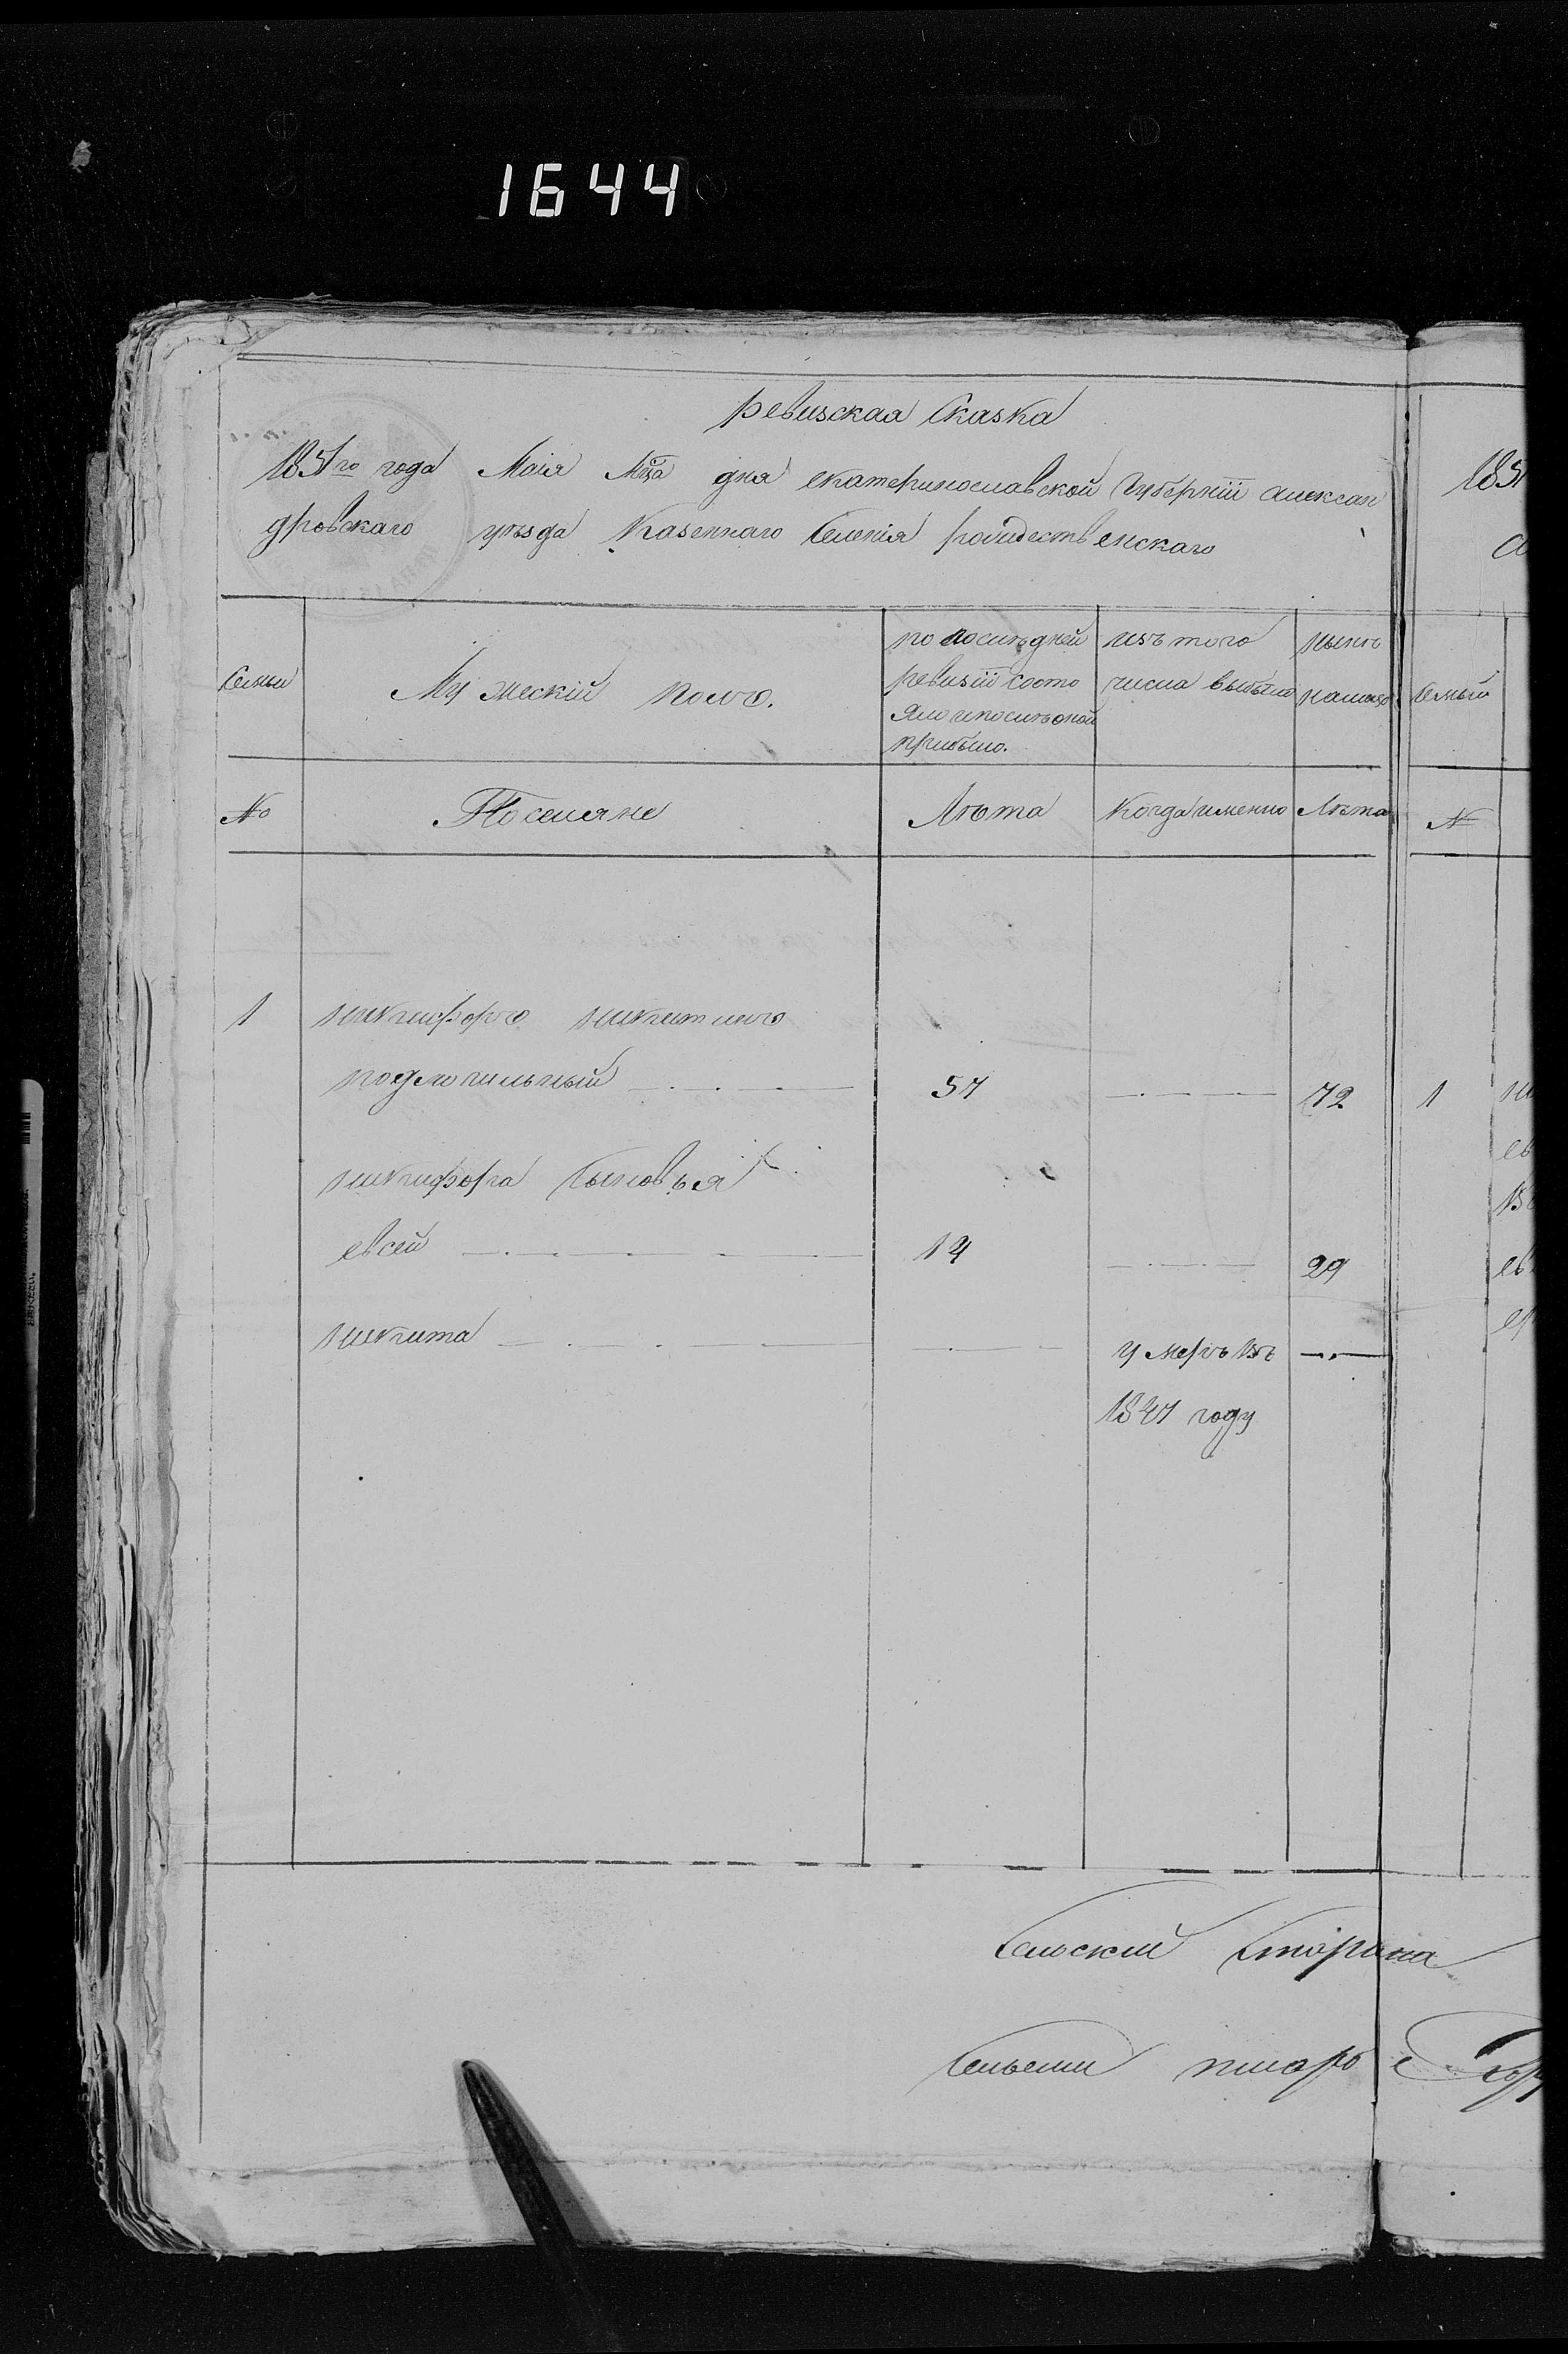 1644
ревизская Сказка
1851го года Маія Мца дня екатеринославской Губерніи алексан
дровскаго уѣзда Казеннаго Селенія рождественскаго
1851
Семьи
Мужескій полъ.
по последней
ревизіи состо
яло и после оной
прибыло.
изъ того
числа выбыло
нынѣ
налицо
Семьи
№
Поселяне
Лѣта
Когда именно
Лѣта
№
1 никифоръ никитинъ
подмогильный 57 72 1
никифора Сыновья
евсей 14 29
никита умеръ въ
1841 году
Сельскій Старшина
Сельский писарь